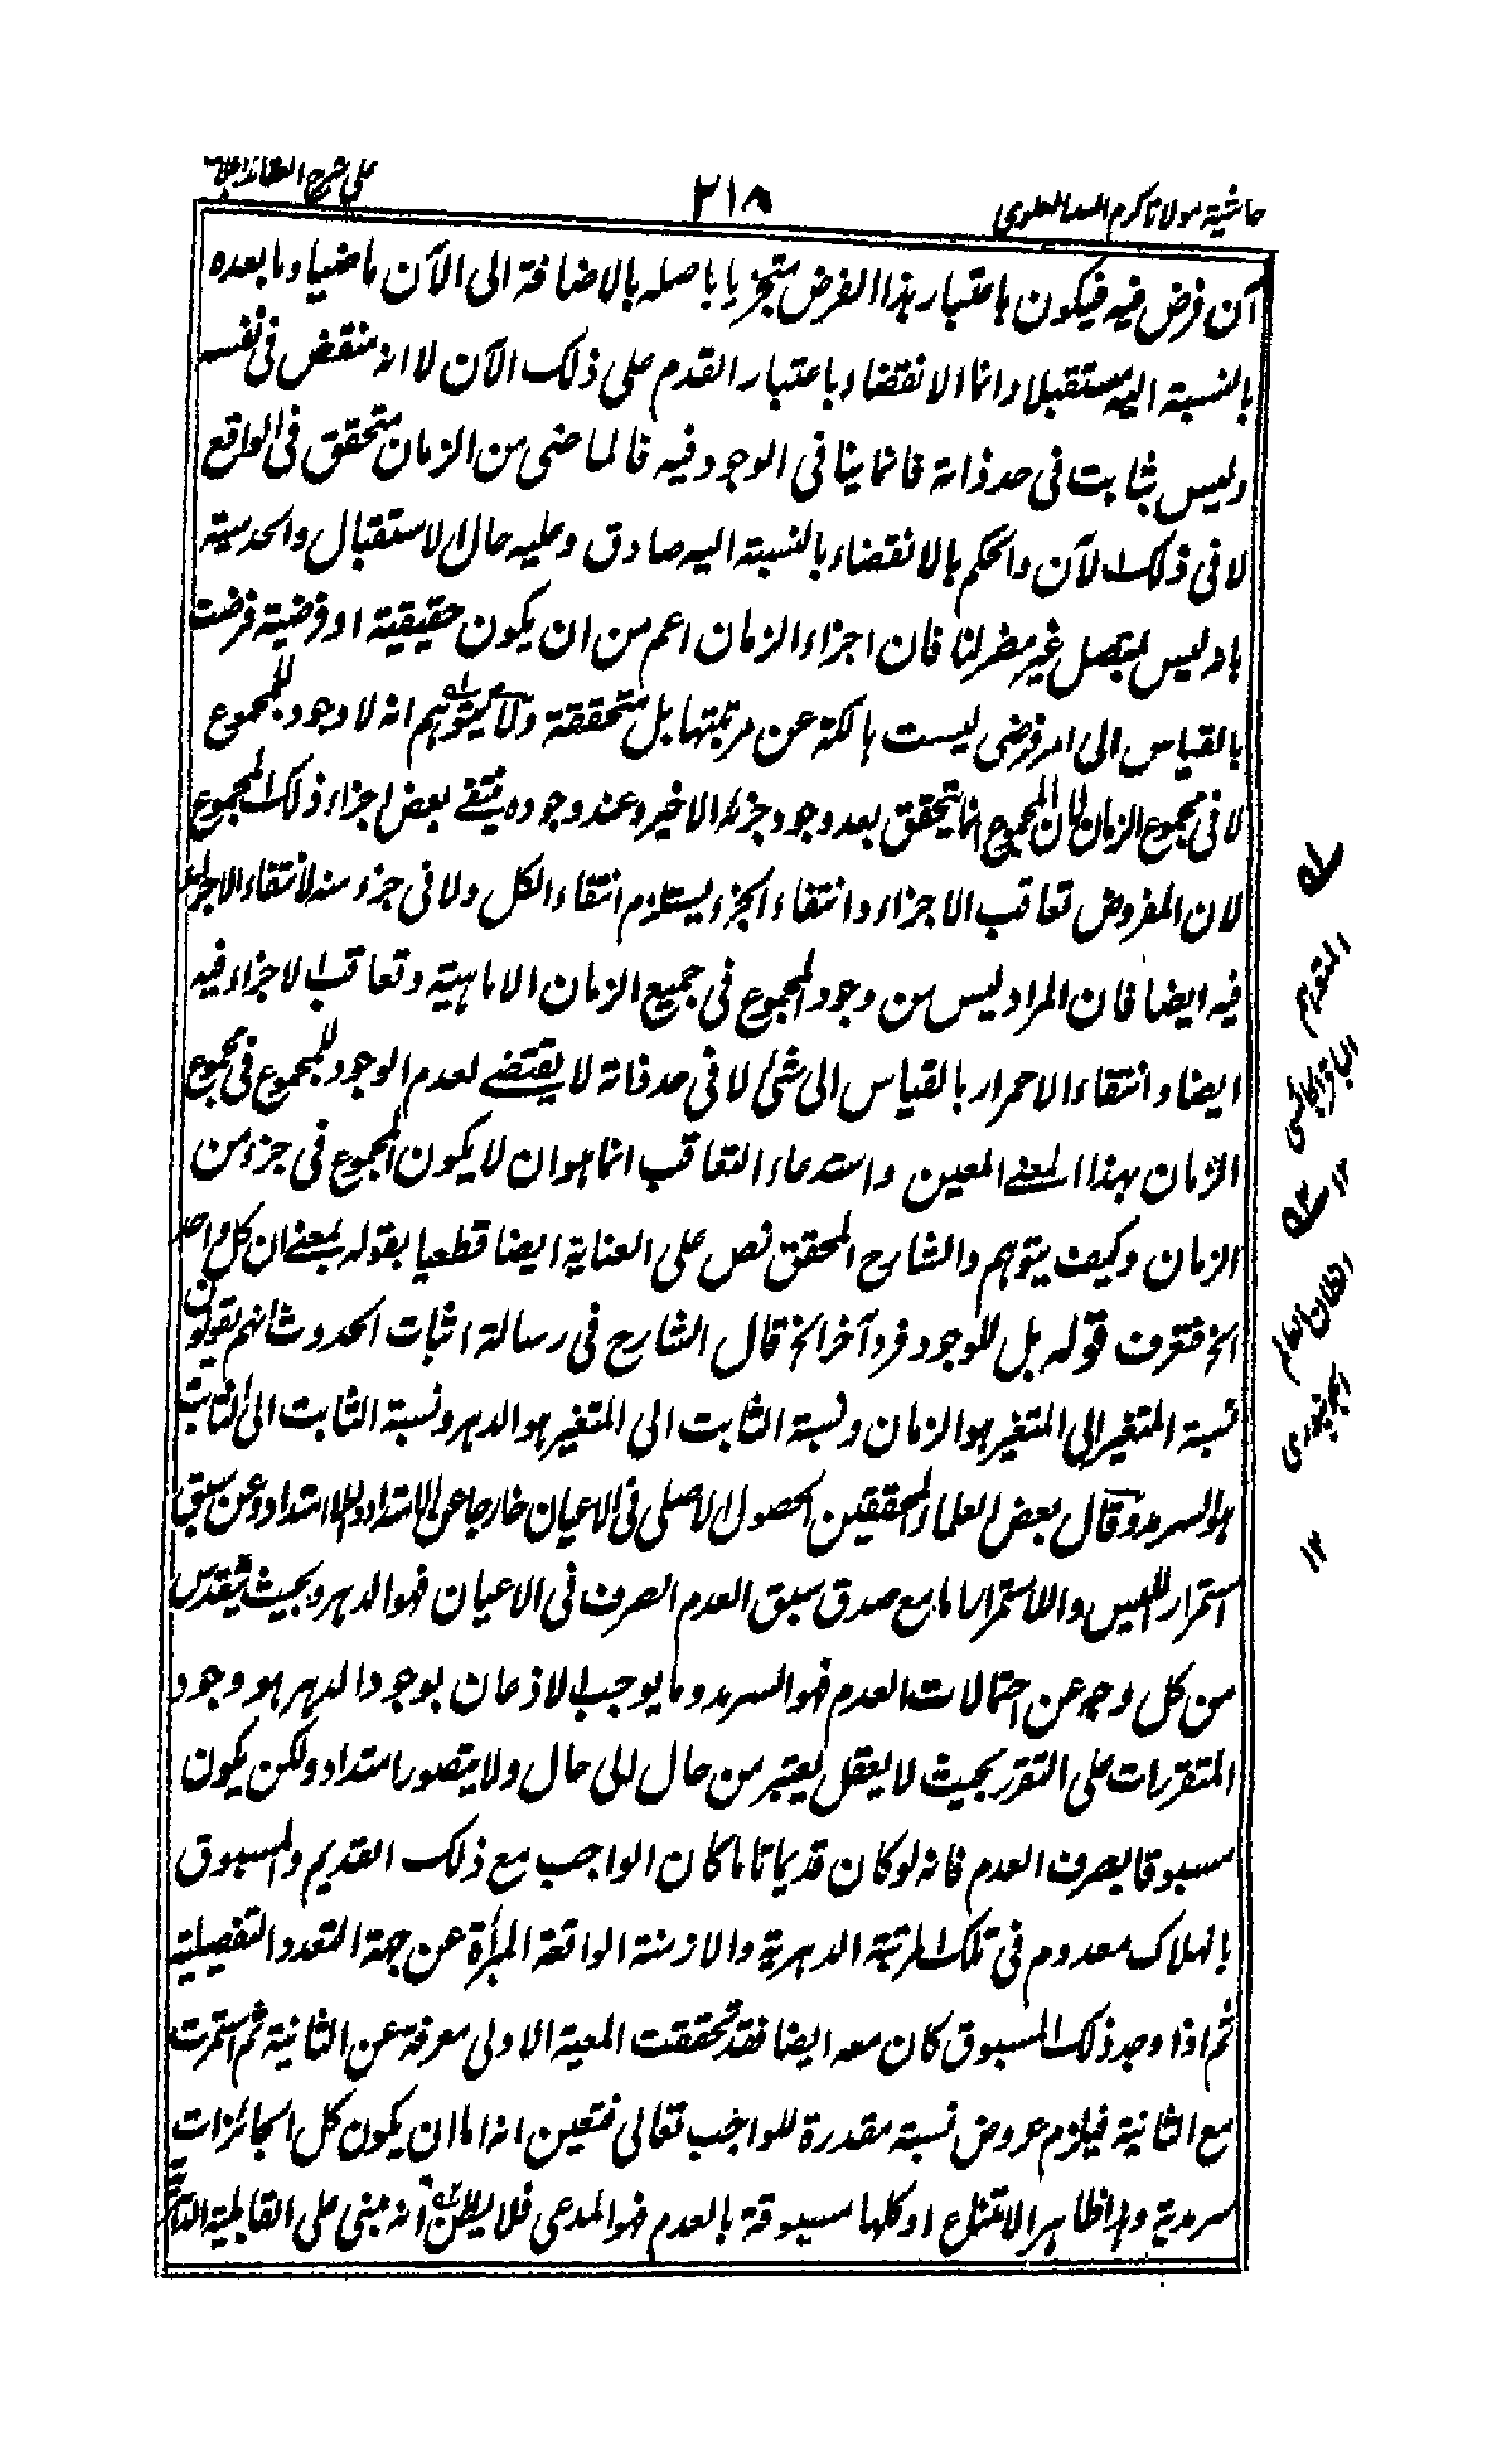 حاشية مولانا كرم الله العلوى
٢١٨
على شرح العقائد
آن فرض فيه فيكون باعتبار هذا الفرض متجزيا باصله بالاضافة الى الآن ماضيا وما بعده
بالنسبة اليه مستقبلا وانما الانقضاء باعتبار القدم على ذلك الآن لا انه منقض فى نفسه
وليس بثابت فى حد ذاته فانما ينافى الوجود فيه فالماضى من الزمان متحقق فى الواقع
لا فى ذلك الآن والحكم بالانقضاء بالنسبة اليه صادق وعليه حال الاستقبال والحدسية
باد ليس بمتصل غير مضر لنا فان اجزاء الزمان اعم من ان يكون حقيقية او فرضية فرضت
بالقياس الى امر فرضى ليست هالكة عن مرتبتها بل متحققة ولا يتوهم انه لا وجود للمجموع
لا فى مجموع الزمان لان المجموع انما يتحقق بعد وجود جزئه الاخير وعند وجوده ينتفى بعض اجزاء ذلك المجموع
لان المفروض تعاقب الاجزاء وانتفاء الجزء يستلزم انتفاء الكل ولا فى جزء منه لانتفاء الاجزاء
فيه ايضا فان المراد ليس من وجود المجموع فى جميع الزمان الا ماهيته وتعاقب الاجزاء فيه
ايضا وانتفاء الاحمرار بالقياس الى شئ لا فى حد ذاته لا يقتضى لعدم الوجود للمجموع فى مجموع
الزمان بهذا المعنى المعين واستدعاء التعاقب انما هو ان لا يكون المجموع فى جزء من
الزمان وكيف يتوهم والشارح المحقق نص على العناية ايضا قطعيا بقوله بمعنى ان كل واحد
الخ فتعرف قوله بل للموجود فرد آخر الخ قال الشارح فى رسالة اثبات الحدوث انهم يقولون
نسبة المتغير الى المتغير هو الزمان ونسبة الثابت الى المتغير هو الدهر ونسبة الثابت الى الثابت
هو السرمد وقال بعض العلماء المحققين الحصول الاصلى فى الاعيان خارجا عن الامتداد واللاامتداد وعن سبق
استمرار الليس واللااستمرار اما مع صدق سبق العدم الصرف فى الاعيان فهو الدهر وبحيث يتقدس
من كل وجه عن احتمالات العدم فهو السرمد وما يوجب الاذعان بوجود الدهر هو وجود
المتقررات على التقرر بحيث لا يعقل يعتبر من حال الى حال ولا يتصور امتداد ولكن يكون
مسبوقا بصرف العدم فانه لو كان قديما تاما كان الواجب مع ذلك القديم والمسبوق
بالهلاك معدوم فى تلك المرتبة الدهرية والازمنة الواقعة المبرأة عن جهة التعدد التفصيلية
ثم اذا وجد ذلك المسبوق كان معه ايضا فقد تحققت المعية الاولى معرفة عن الثانية ثم استمرت
مع الثانية فيلزم عروض نسبة مقدرة للواجب تعالى فتعين انه اما ان يكون كل الجائزات
سرمدية وهذا ظاهر الامتناع او كلها مسبوقة بالعدم فهو المدعى فلا يظن انه مبنى على القابلية
المتوهم
١٢
الظان
١٢